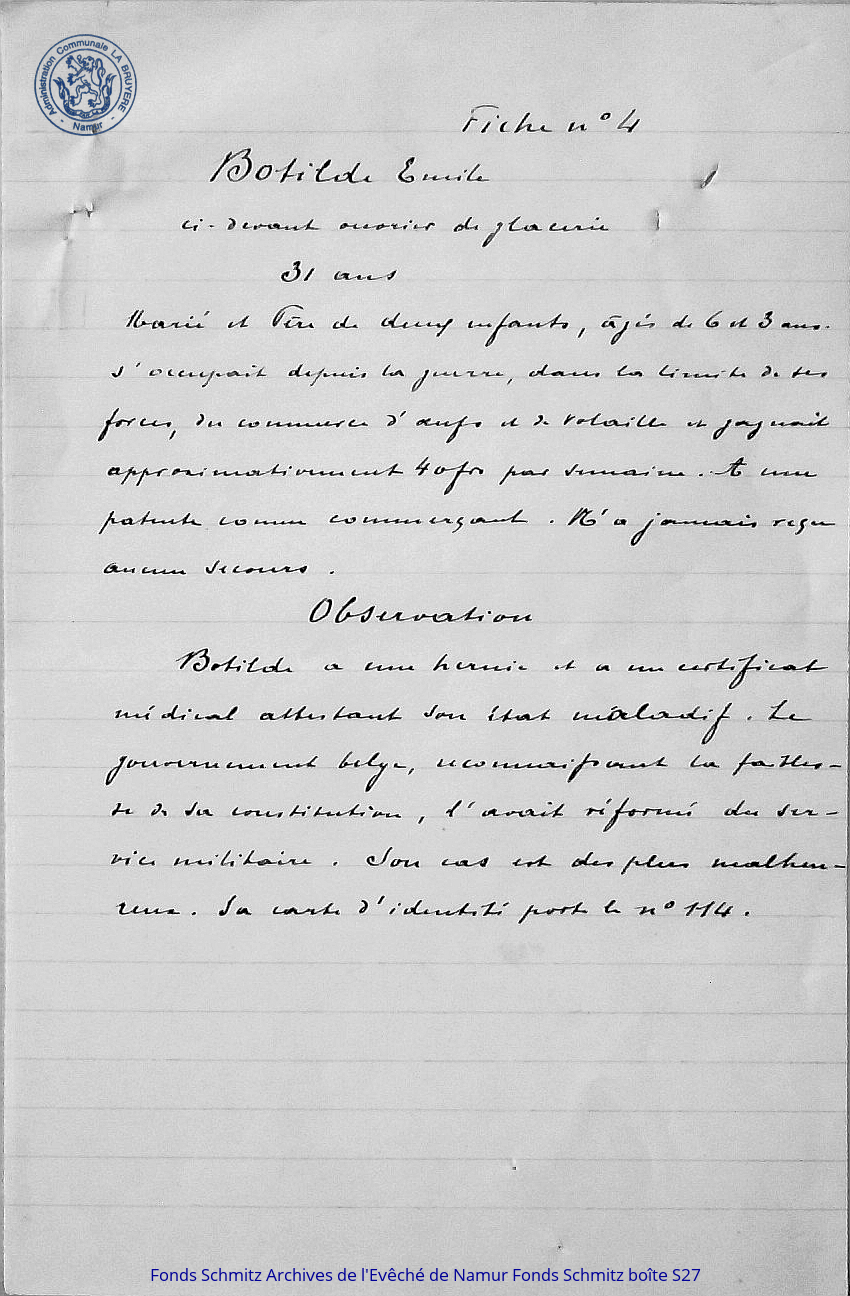 Administration Communale LA BRUYERE
- Namur -
Fiche n° 4
Botilde Emile
ci-devant ouvrier de glacerie
31 ans
Marié et Père de deux enfants, âgés de 6 et 3 ans.
s'occupait depuis la guerre, dans la limite de ses
forces, du commerce d'œufs et de volaille et gagnait
approximativement 40 frs par semaine. A une
patente comme commerçant. N'a jamais reçu
aucun secours.
Observation
Botilde a une hernie et a un certificat
médical attestant son état maladif. Le
gouvernement belge, reconnaissant la faibles-
se de sa constitution, l'avait réformé du ser-
vice militaire. Son cas est des plus malheu-
reux. Sa carte d'identité porte le n° 114.
Fonds Schmitz Archives de l'Evêché de Namur Fonds Schmitz boîte S27